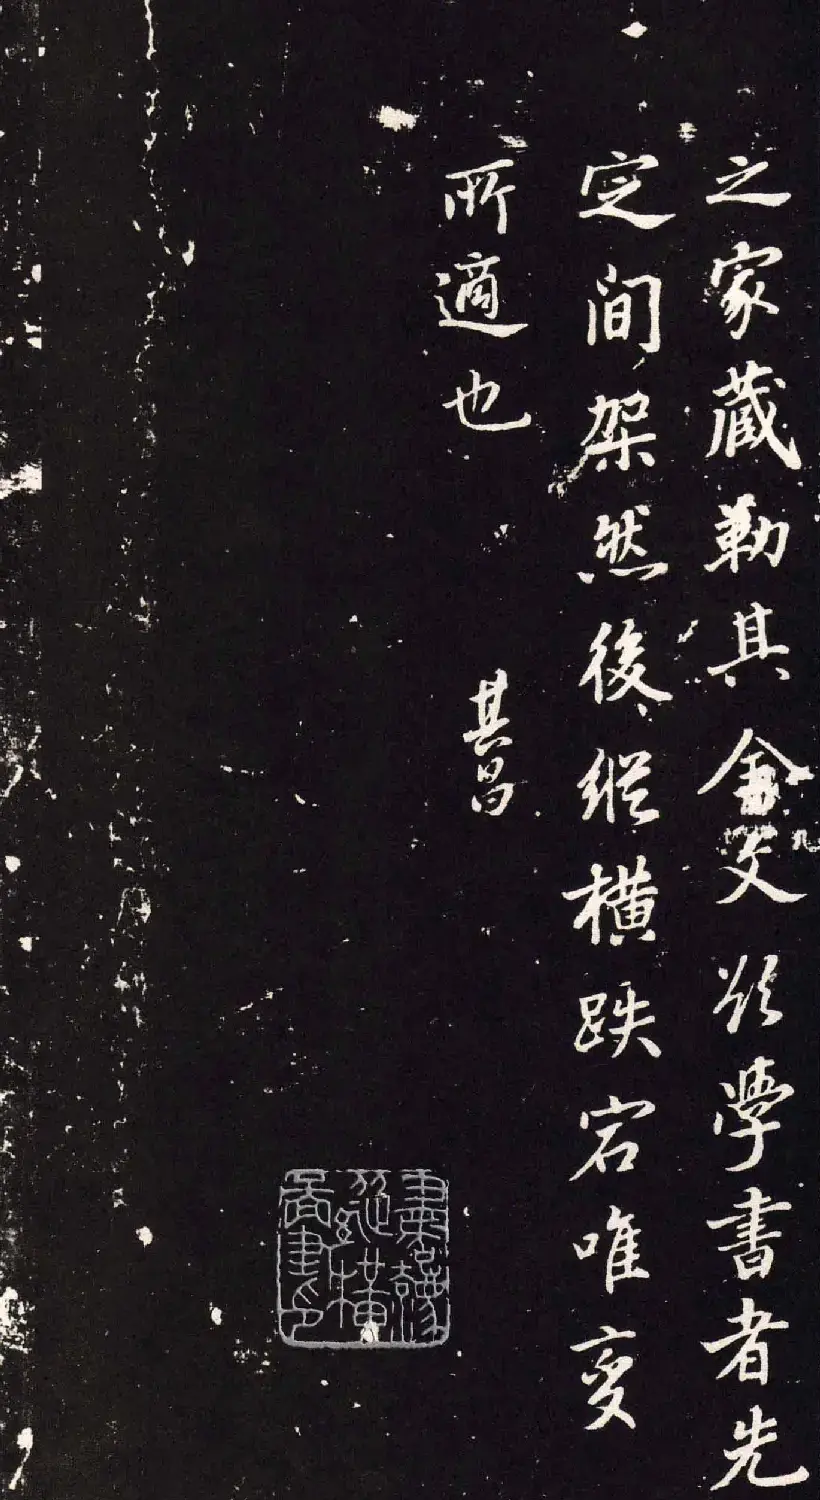 之家藏勒其全文欲學書者先
定間架然後縱橫跌宕唯變
所適也
其昌